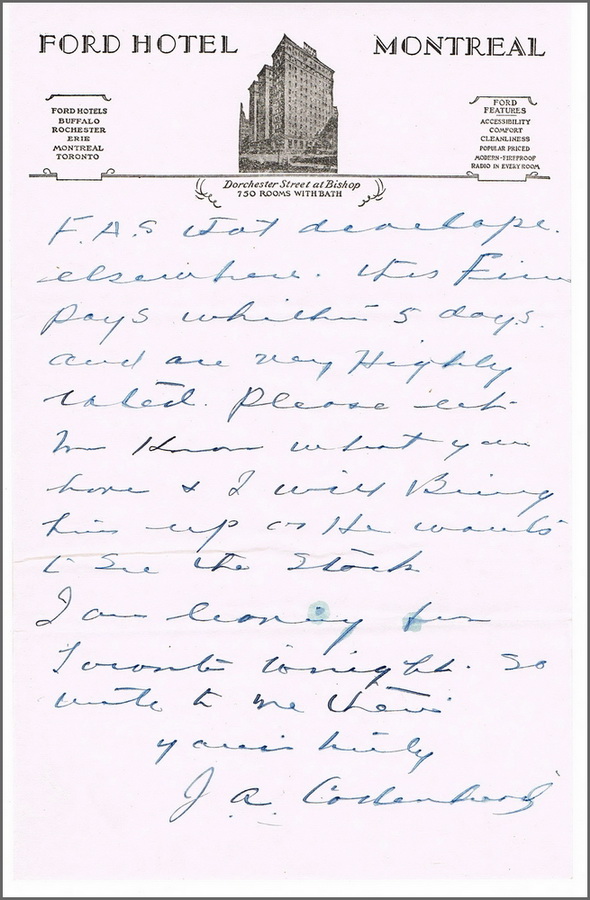 FORD HOTEL MONTREAL
FORD HOTELS
BUFFALO
ROCHESTER
ERIE
MONTREAL
TORONTO
FORD
FEATURES
ACCESSIBILITY
COMFORT
CLEANLINESS
POPULAR PRICED
MODERN-FIREPROOF
RADIO IN EVERY ROOM
Dorchester Street at Bishop
750 ROOMS WITH BATH
F.A.S develope
elsewhere. this Firm
pays whithin 5 days.
and are very Highly
rated. Please let
me Know what you
have & I will Bring
him up as He wants
to See the Stock
I am leaving for
Toronto tonight. So
write to me there
yours truly
J. A.